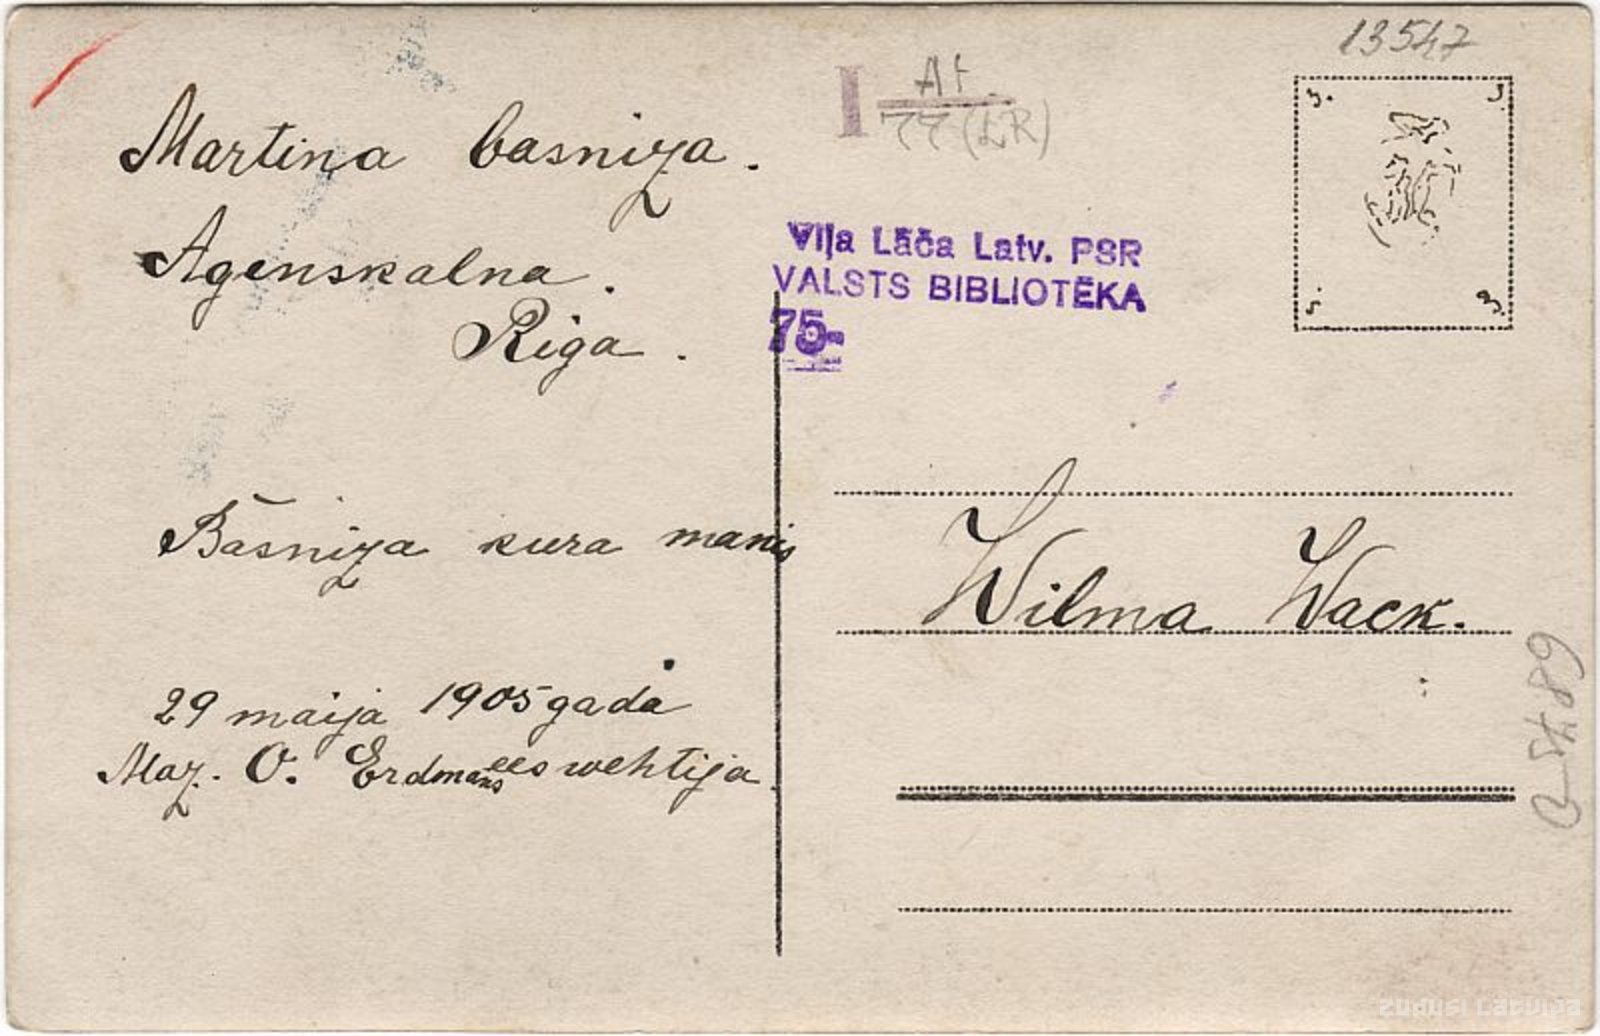 13547
I At.
77 (LR)
Martina basniza.
Agenskalna.
Riga.
Viļa Lāča Latv. PSR
VALSTS BIBLIOTĒKA
75-
Bāsniza kura manis
29 maija 1905 gada
Maz. O. Erdmans eeswehtija
Wilma Wack.
B-5489
zudusi Latvija